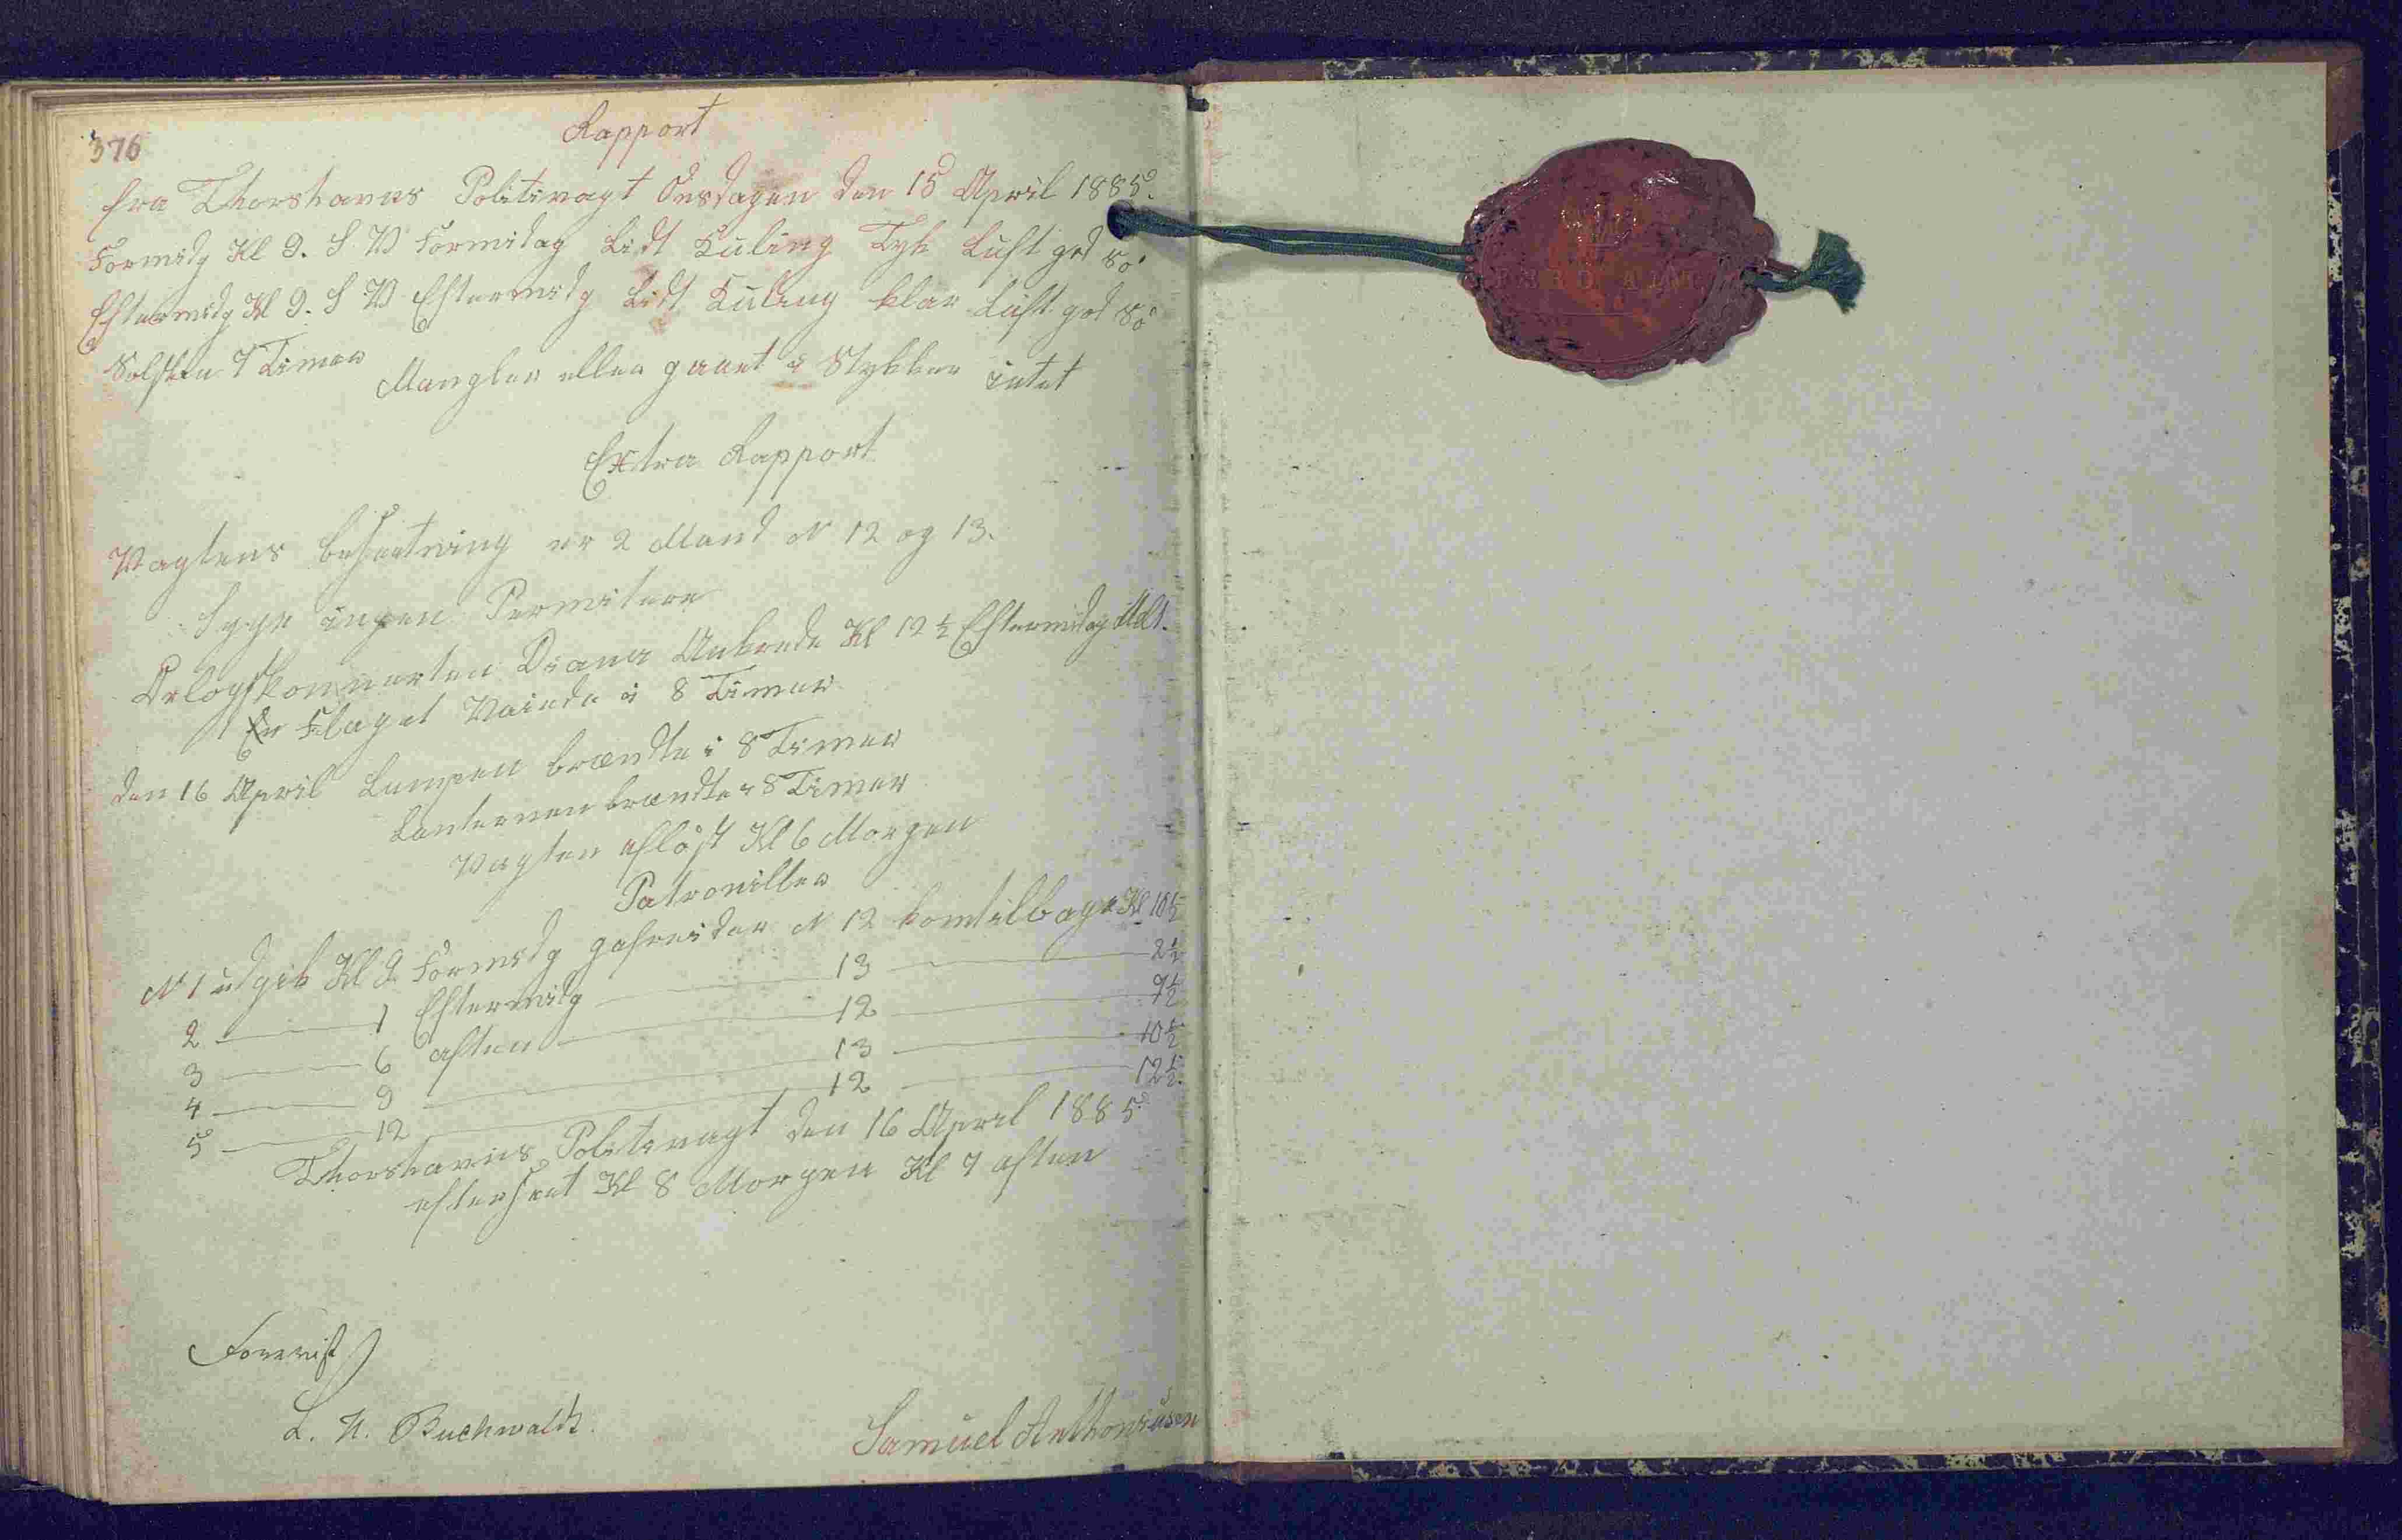 376
Rapport
fra Thorshavns Politivagt Onsdagen den 15 April 1885.
Formidg Kl 9. S V Formidag Lidt Kuling Tyk Luft god Sö
Eftermidg Kl 9. S V Eftermidg Lidt Kuling klar Luft god Sö
Solskin 7 Timer
Mangler eller gaaet i Stykker intet
Extra Rapport
Vagtens besætning er 2 Mand N 12 og 13.
Syge ingen Permitere
Orlogskonnerten Diana Ankrede Kl 12 ½ Eftermidag
Flaget Vaiede i 8 Timer
den 16 April Lampen brændte i 8 Timer
Lanternen brændte i 8 Timer
Vagten aflöst Kl 6 Morgen
Patrouiller
N 1 udgik Kl 9 Formidg gefreider N 12 kom tilbage Kl 10½
2 — 1 Eftermidg — 13 — 2½
3 — 6 aften — 12 — 7½
4 — 9 — 13 — 10½
5 — 12 — 12 — 12½.
Thorshavns Politivagt den 16 April 1885
efterseet Kl 8 Morgen Kl 7 aften
Forevist
L. H. Buchwaldt.
Samuel Anthoniusen